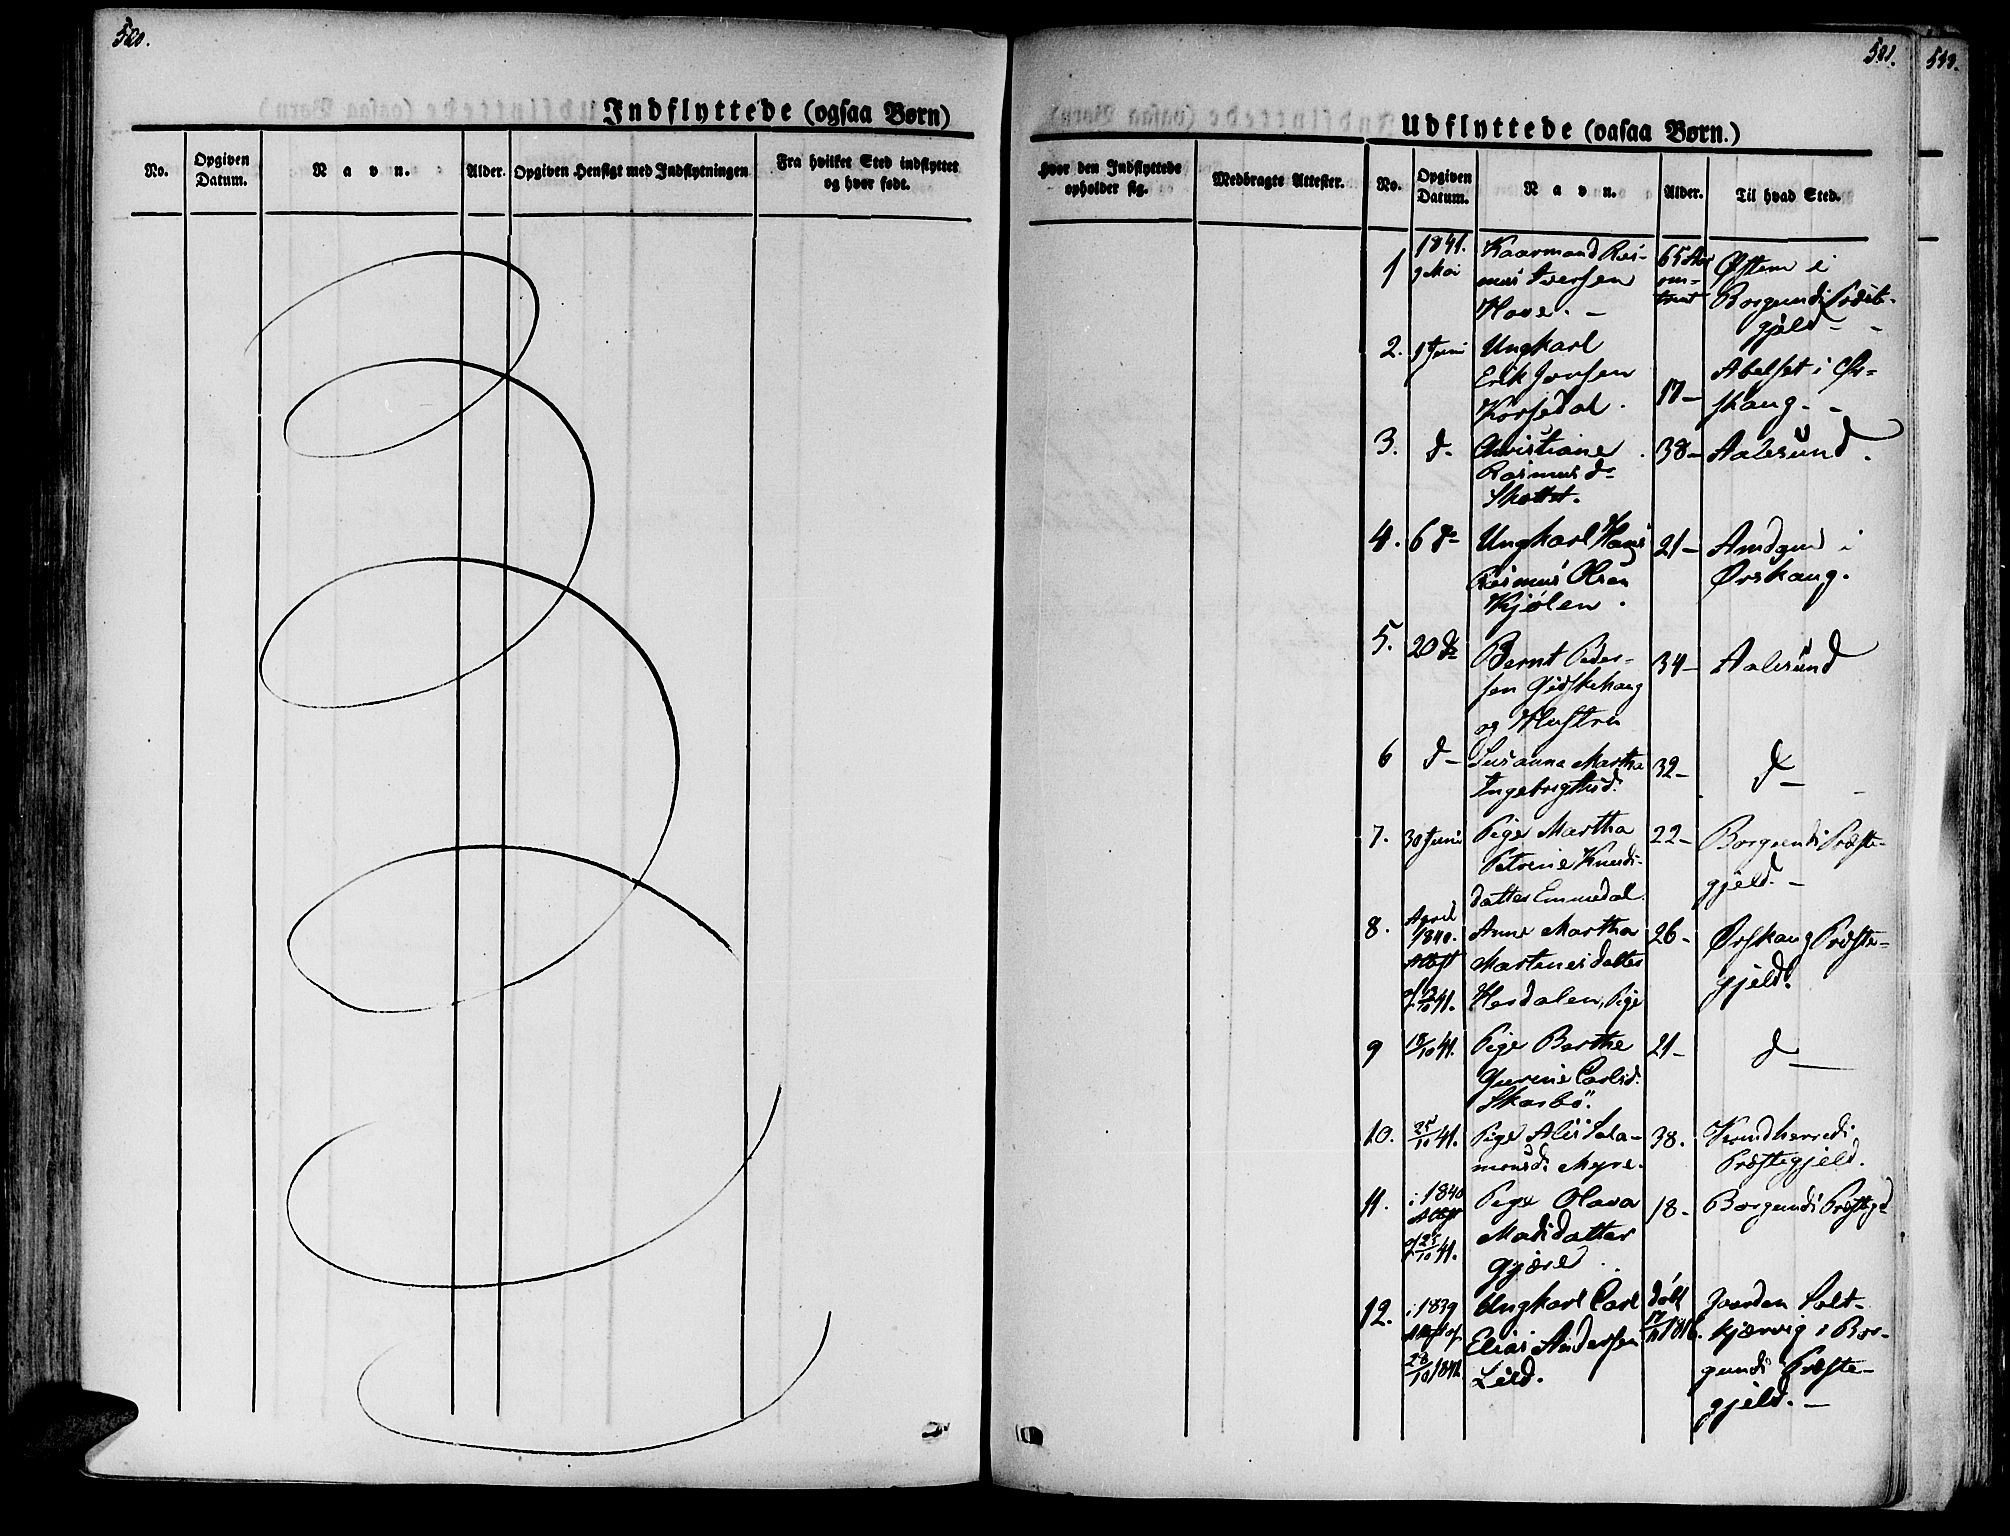 500.
Indflyttede (ogsaa Børn)
No.
Opgiven Datum.
Navn.
Alder.
Opgiven Hensigt med Indflytningen
Fra hvilket Sted indflyttet og hvor født.
501.
Udflyttede (ogsaa Børn.)
Hvor den Indflyttede opholder sig.
Medbragte Attester.
No.
Opgiven Datum.
Navn.
Alder.
Til hvad Sted.
1 1841. 9 Mai Kaarmand Ras-
mus Iversen
Hove. -
65 Aar
Østem i
Borgunds Præste-
gjeld -
2. 1 Juni Ungkarl
Erik Jonsen
Korsedal.
17 -
Abelset i Ør-
skaug -
3. d- Christiane
Rasmusd-
Skottet.
38 - Aalesund.
4. 6 d- Ungkarl Hans
Rasmus Olsen
Kjølen.
21 - Amdam i
Ørskaug.
5. 20 d- Bernt Peder-
sen Gidskehaug
og Hustru
34 - Aalesund
6 d- Susanna Martha
Ingebrigtsd.
32 - d-
7. 30 Juni Pige Martha
Petrine Knuds-
datter Emmedal.
22 - Borgunds Præste-
gjeld. -
8. April 1840. Attest
Anne Martha
Martinusdatter
Hesdalen, Pige
26 - Ørskaug Præste-
gjeld.
9 18/10 41. Pige Berthe
Gurine Carlsd.
Skarbö.
21 - d-
10. 25/10 41. Pige Alis Sala-
monsd. Myre.
38. Kvindherreds
Præstegjeld.
11. i 1840 Attest
af 25/10 41.
Pige Olava
Madsdatter
Gjære
18 - Borgunds Præstegd
12. i 1839 Attest af
28/10 1841
Ungkarl Carl
Elias Andersen
Lied.
døbt
17/11 1816.
Gaarden Solt-
kjærvig i Bor-
gunds Præste-
gjeld. -